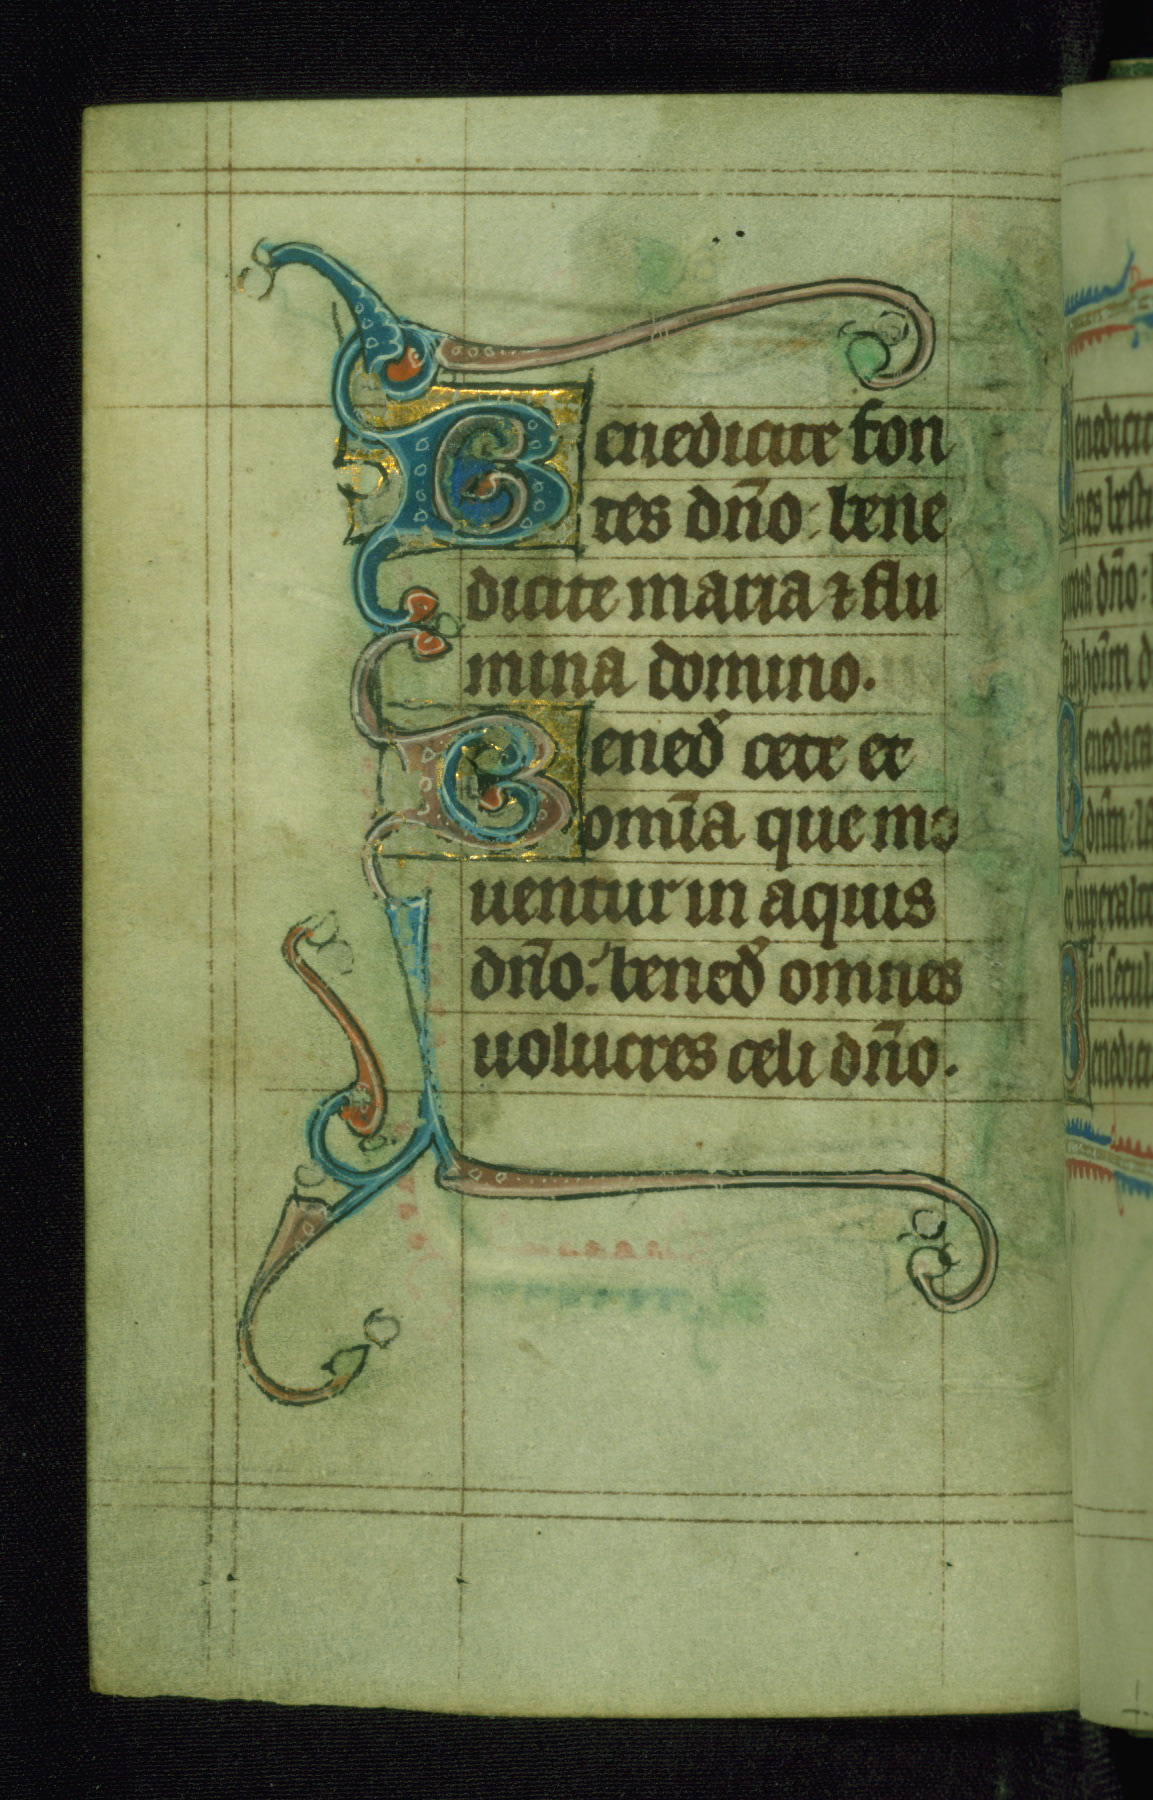 Benedicite fon
tes dn̄o: bene
dicite maria ⁊ flu
mina domino.
Bened̉ cete et
om̄ia que mo
uentur in aquis
dn̄o: bened̉ omnes
uolucres celi dn̄o.
enedicite
nes
dn̄o:
hoīm
enedica
dn̄m:
et superexalt
in secul
enedici